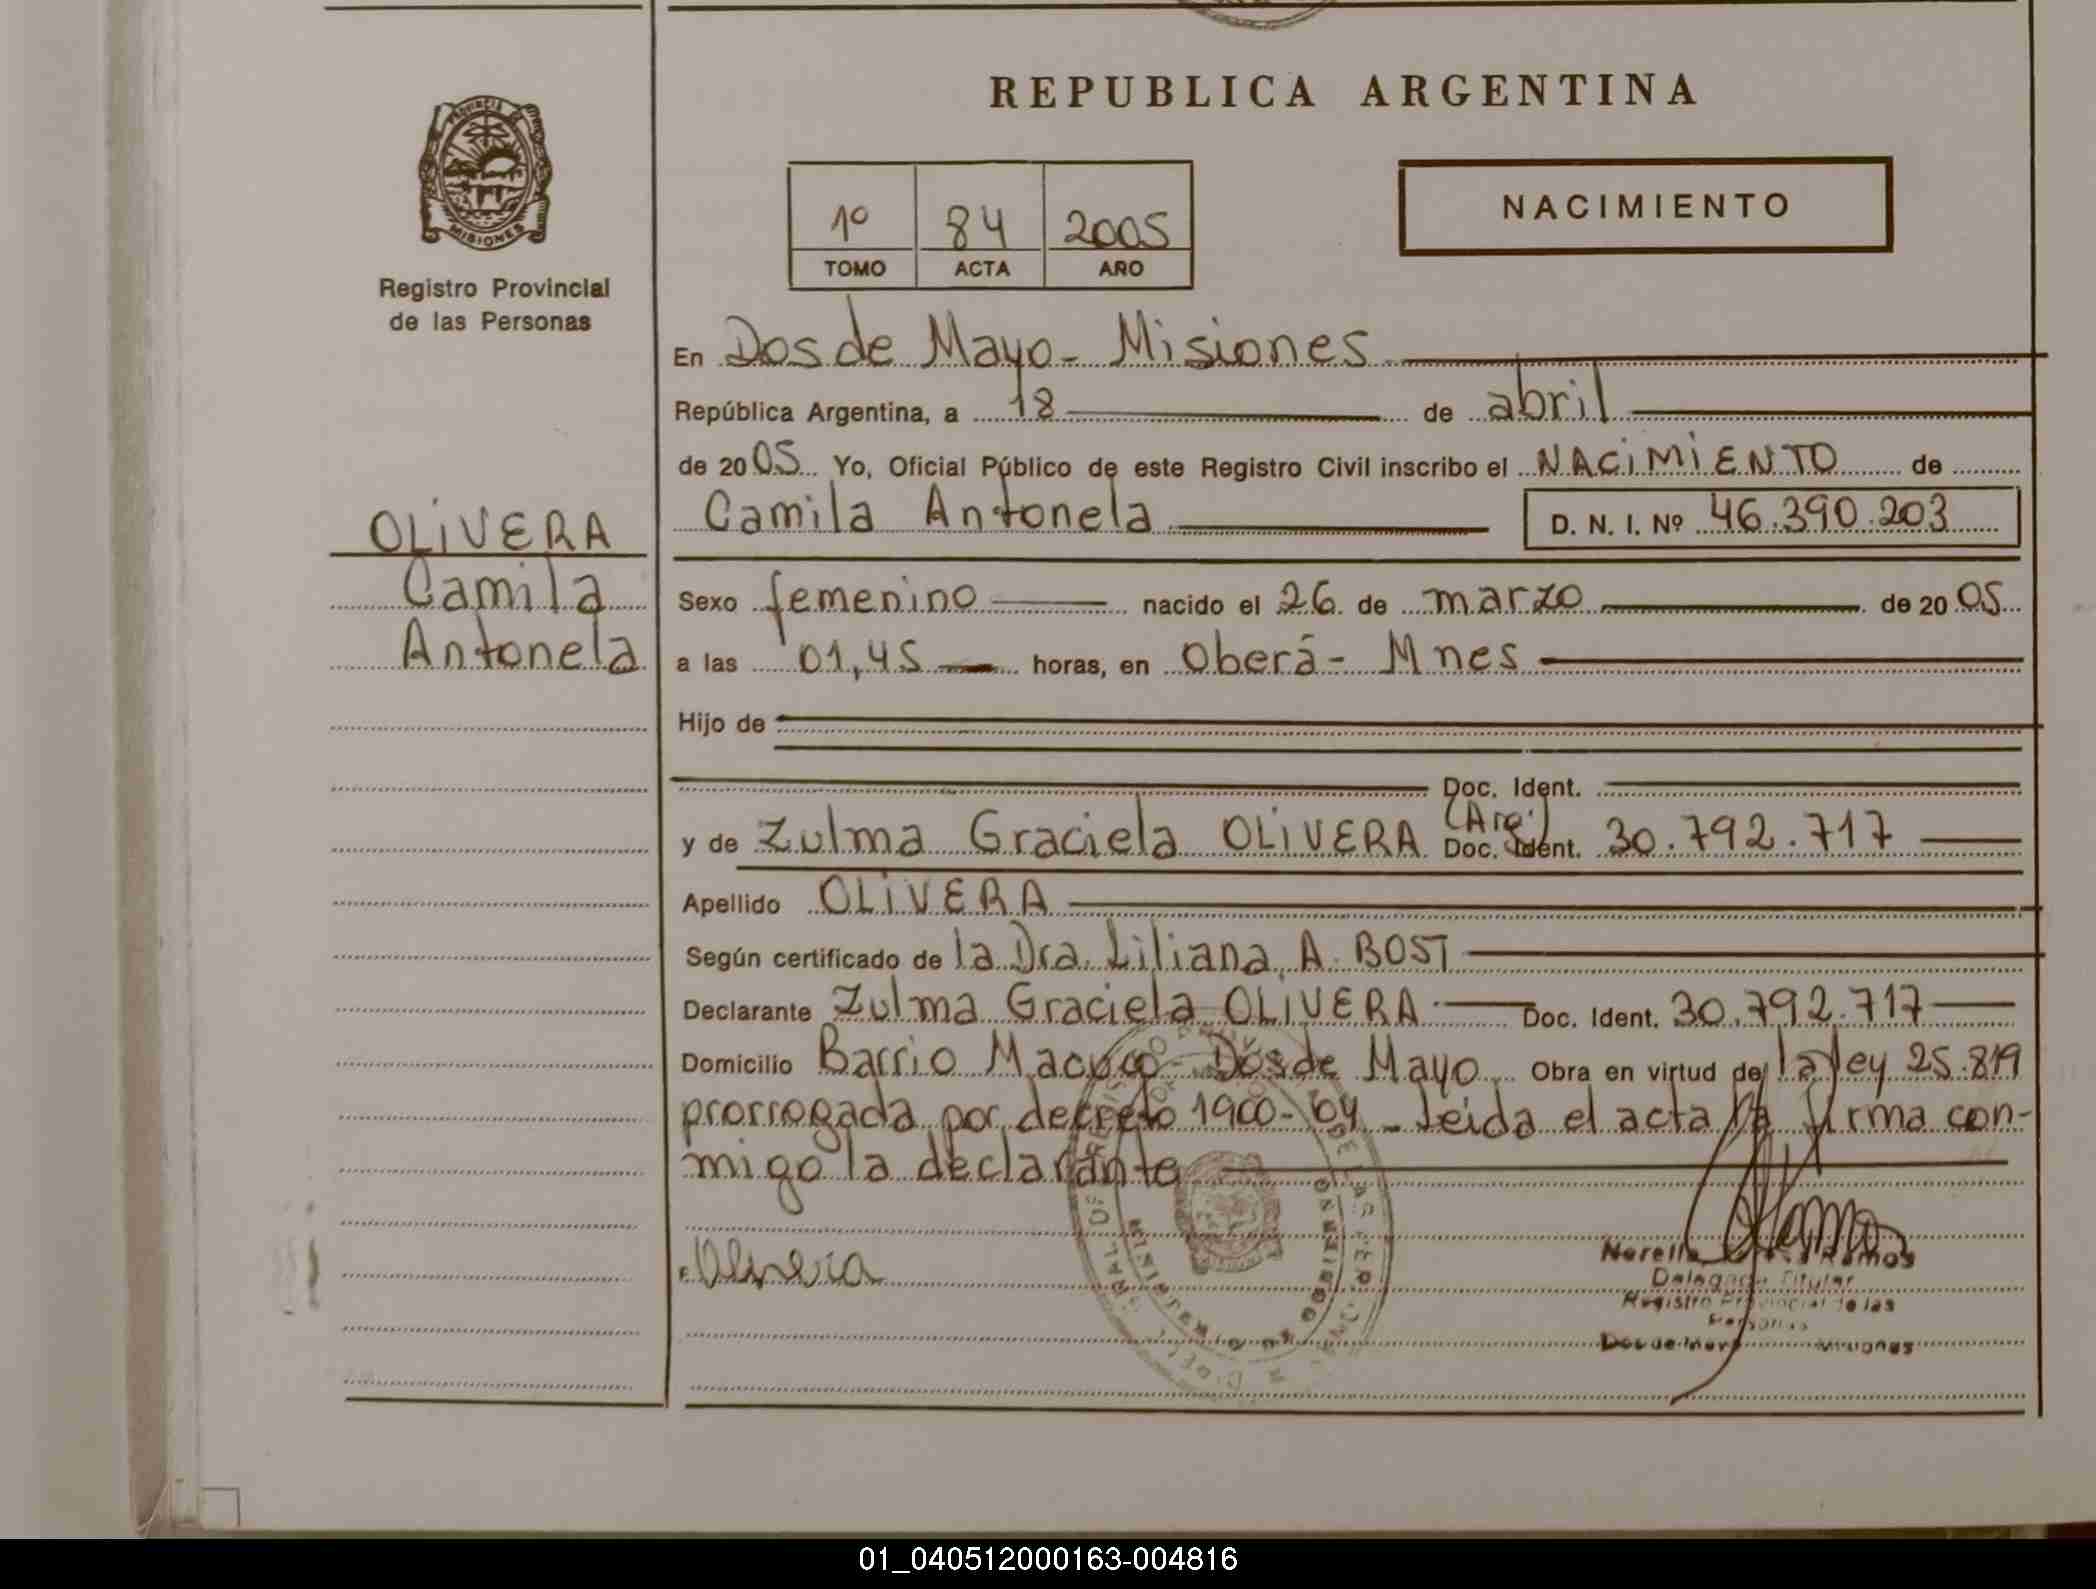 REPUBLICA ARGENTINA
PROVINCIA DE
MISIONES
Registro Provincial
de las Personas
1º 84 2005
TOMO ACTA AÑO
NACIMIENTO
En Dos de Mayo - Misiones
República Argentina, a 18 de abril
de 2005 Yo, Oficial Público de este Registro Civil inscribo el NACIMIENTO de
OLIVERA
Camila
Antonela
Camila Antonela D. N. I. Nº 46.390.203
Sexo femenino nacido el 26 de marzo de 2005
a las 01,45 horas, en Oberá - Mnes
Hijo de
Doc. Ident.
y de Zulma Graciela OLIVERA (Arg.) Doc. Ident. 30.792.717
Apellido OLIVERA
Según certificado de la Dra. Liliana A. BOST
Declarante Zulma Graciela OLIVERA Doc. Ident. 30.792.717
Domicilio Barrio Macuco - Dos de Mayo Obra en virtud de la ley 25.819
prorrogada por decreto 1900-04 - Leida el acta la firma con-
migo la declarante
Olivera
Ramos
Titular
Registro Provincial de las
Personas
Dos de Mayo Misiones
01_040512000163-004816